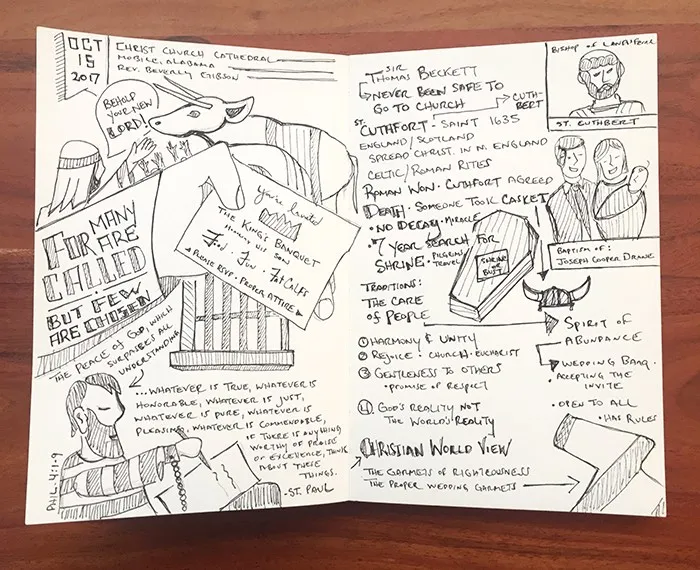 OCT
15
2017
CHRIST CHURCH CATHEDRAL
MOBILE, ALABAMA
REV. BEVERLY GIBSON
BEHOLD
YOUR NEW
LORD!
you're Invited
THE KING'S BANQUET
HONORING HIS SON
Food · Fun · Fat Calfs
PLEASE RSVP · PROPER ATTIRE
FOR MANY
ARE
CALLED
BUT FEW
ARE CHOSEN
THE PEACE OF GOD, WHICH
SURPASSES ALL
UNDERSTANDING
...WHATEVER IS TRUE, WHATEVER IS
HONORABLE, WHATEVER IS JUST,
WHATEVER IS PURE, WHATEVER IS
PLEASING, WHATEVER IS COMMENDABLE,
IF THERE IS ANYTHING
WORTHY OF PRAISE
OR EXCELLENCE, THINK
ABOUT THESE
THINGS.
-ST. PAUL
PHIL. 4:1-9
SIR
THOMAS BECKETT
NEVER BEEN SAFE TO
GO TO CHURCH
CUTHBERT
ST. CUTHFORT - SAINT 1635
ENGLAND/SCOTLAND
SPREAD CHRIST. IN N. ENGLAND
CELTIC/ROMAN RITES
ROMAN WON · CUTHFORT AGREED
DEATH · SOMEONE TOOK CASKET
· NO DECAY · MIRACLE
7 YEAR SEARCH FOR
SHRINE · PILGRIMS
TRAVEL
SHRINE
BUST
BISHOP OF
ST. CUTHBERT
BAPTISM OF:
JOSEPH COOPER DRANE
TRADITIONS:
THE CARE
OF PEOPLE
1 HARMONY & UNITY
2 REJOICE · CHURCH · EUCHARIST
3 GENTLENESS TO OTHERS
· PROMISE OF RESPECT
4 GOD'S REALITY NOT
THE WORLD'S REALITY
SPIRIT OF
ABUNDANCE
WEDDING BANQ.
· ACCEPTING THE
INVITE
· OPEN TO ALL
· HAS RULES
CHRISTIAN WORLD VIEW
THE GARMETS OF RIGHTEOUSNESS
THE PROPER WEDDING GARMETS